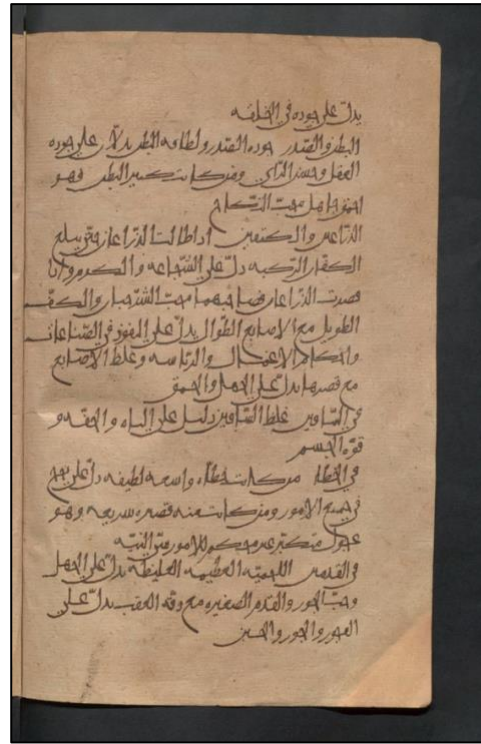 يدل على جوده في الخلقه
البطن والصدر جوده الصدر ولطافه البطن يدلان على جوده
العقل وحسن الراي ومن كانت كبير البطن فهو
احمق جاهل محب النكاح
الذراعين والكتفين اذا طالت الذراعان حتى يبلغ
الكف الركبه دل على الشجاعه والكرم واذا
قصرت الذراعان فصاحبهما محب الشر جبان والكف
الطويل مع الاصابع الطوال يدل على الفوز في الصناعات
واحكام الاعمال والرياسه وغلظ الاصابع
مع قصرها يدل على الجهل والحمق
في الساقين غلظ الساقين دليل على البله والحقه و
قوه الجسم
في الخطا من كانت خطاه واسعه لطيفه دل على نجح
في جميع الامور ومن كانت منه قصيره سريعه وهو
عجول متكبر غير محكم للامور النيه
في القدمين اللحميه العظيمه الغليظه يدل على الجهل
وحب الجور والقدم الصغيره مع دقه العقب يدل على
الفجور والجور والجبن